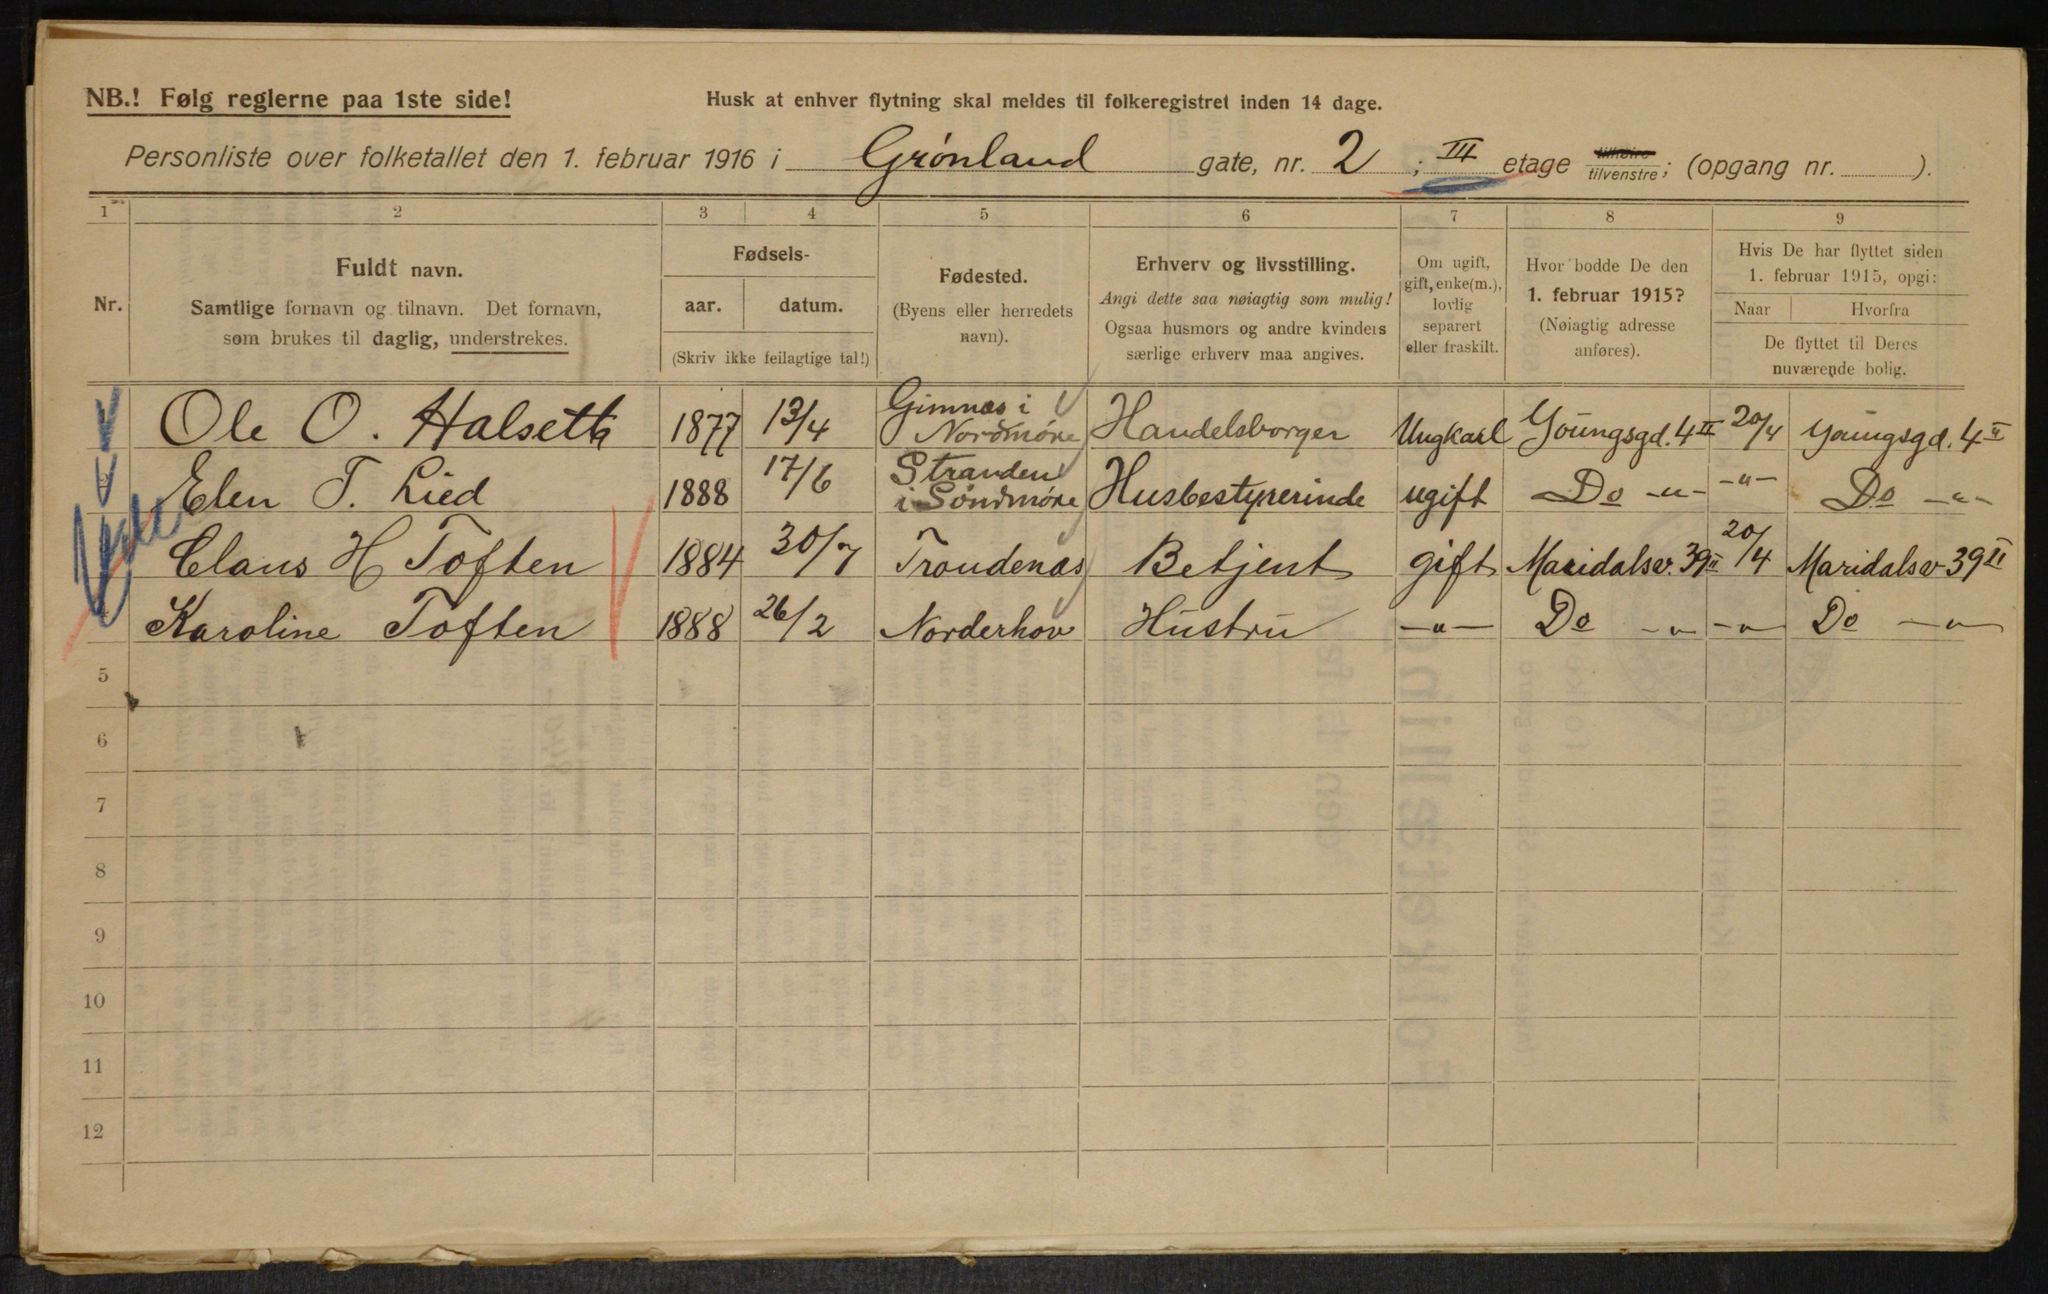 NB.! Følg reglerne paa 1ste side!
Husk at enhver flytning skal meldes til folkeregistret inden 14 dage.
Personliste over folketallet den 1. februar 1916 i Grønland gate, nr. 2 ; III etage tilhøire tilvenstre; (opgang nr. ).
1 2 3 4 5 6 7 8 9
Nr.
Fuldt navn.
Samtlige fornavn og tilnavn. Det fornavn,
som brukes til daglig, understrekes.
Fødsels-
aar. datum.
(Skriv ikke feilagtige tal!)
Fødested.
(Byens eller herredets
navn).
Erhverv og livsstilling.
Angi dette saa nøiagtig som mulig!
Ogsaa husmors og andre kvinders
særlige erhverv maa angives.
Om ugift,
gift, enke(m.),
lovlig
separert
eller fraskilt.
Hvor bodde De den
1. februar 1915?
(Nøiagtig adresse
anføres).
Hvis De har flyttet siden
1. februar 1915, opgi:
Naar Hvorfra
De flyttet til Deres
nuværende bolig.
Ole O. Halseth 1877 13/4 Gimnæs i Nordmøre Handelsborger Ungkarl Youngsgd. 4 II 20/4 Youngsgd. 4 II
Elen T. Lied 1888 17/6 Stranden i Søndmøre Husbestyrerinde ugift Do -"- -"- Do -"-
Claus H Toften 1884 30/7 Trondenæs Betjent gift Maridalsv. 39 II 20/4 Maridalsv 39 II
Karoline Toften 1888 26/2 Norderhov Hustru -"- Do -"- -"- Do -"-
5
6
7
8
9
10
11
12